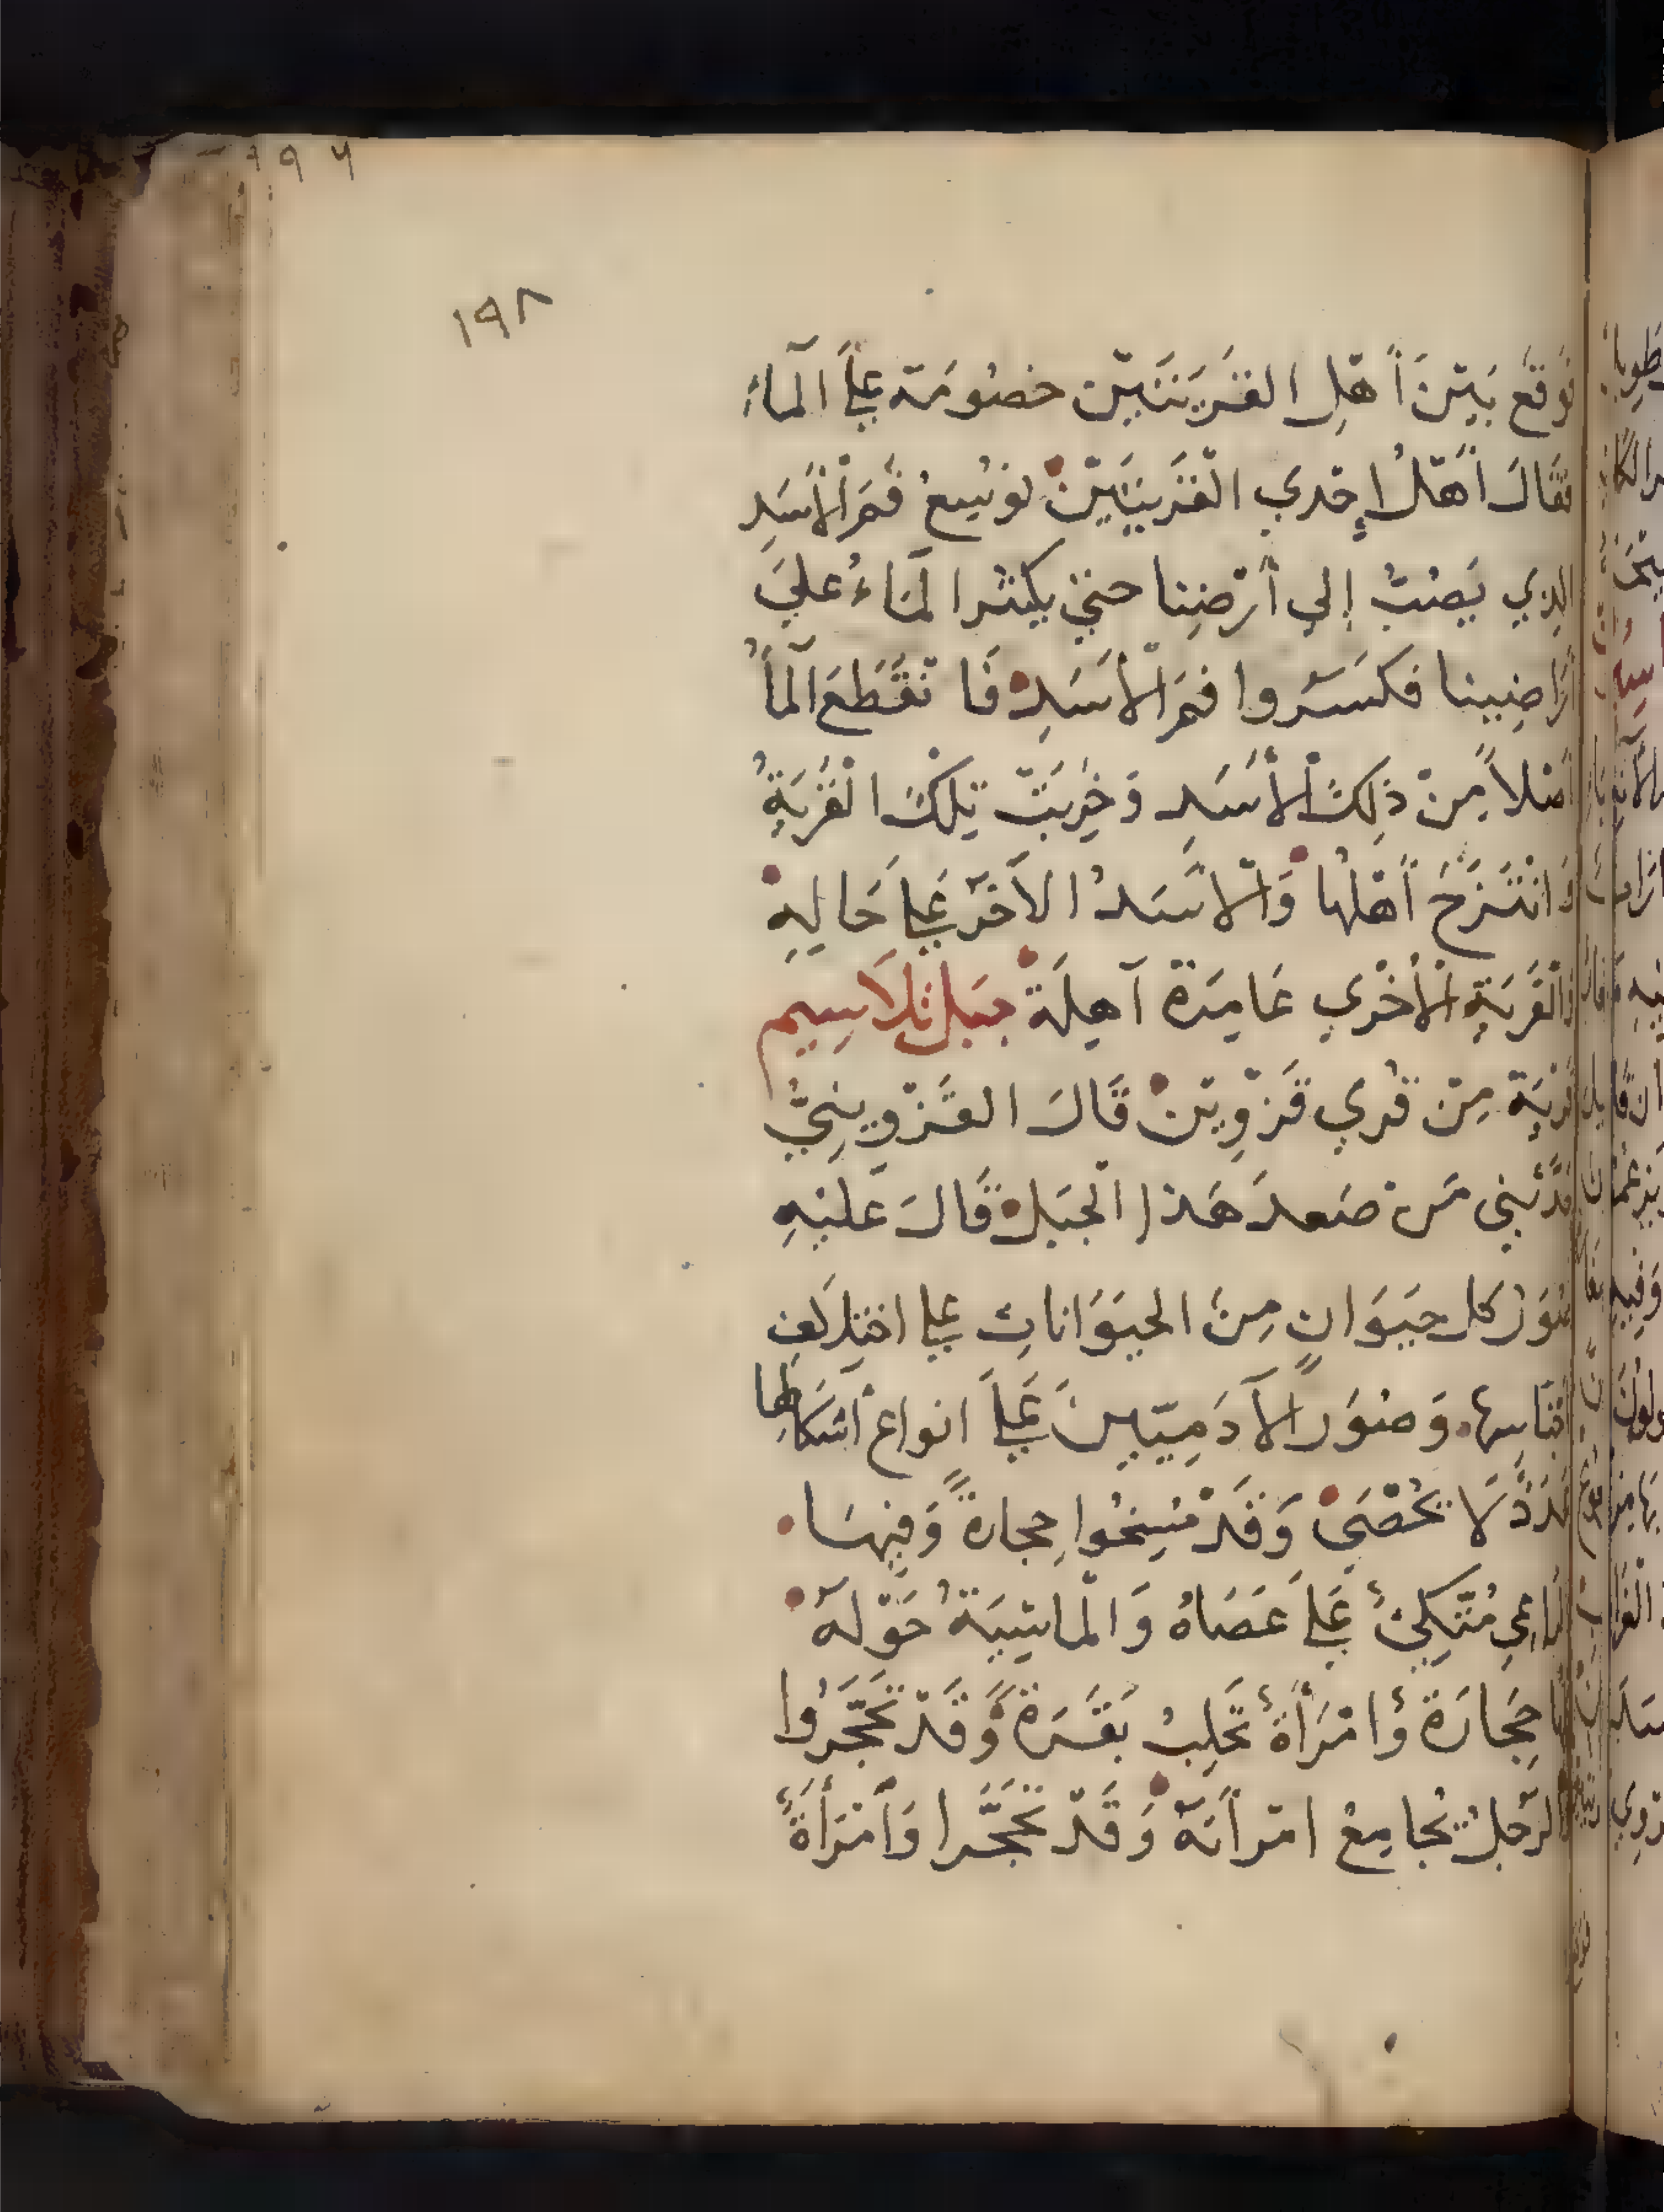 ١٩٨
فَوقَع بَيْنَ أَهْلِ القَرْيَتَيْن خصُومَة عَلَى المآءِ
فقَالَ أَهْلُ إِحْدي القَرْيَتَيْنْ نوسِيع فَمَ الأَسَدِ
الذِي يَصُبُّ إِلي أَرْضِنا حتي يكثر المَاءُ عليَ
أرَاضِيينا فكسَّرُوا فمَ الأَسَدِ فَا نْقَطَعَ المآُ
أصْلاً مِنْ ذلِكَ الأَسَدِ وَخَرِبَتْ تِلكَ القَرْيَةُ
وَانْتَزَحَ أَهْلُها وَالأَسَدُ الآخَر عَلَى حَالِهِ
وَالْقَرْيَةِ الأُخْري عَامِرَة آهِلَة جبَل تلاَسِيم
قَرْيَة مِنْ قُري قَزْوِيْنْ قَالَ القَزْوِينِيُّ
حَدَّثَنِي مَنْ صَعدَ هَذا الْجبَل قَالَ عَليْهِ
صُوَرُ كل حيَوَانٍ مِنَ الحيَوَاناتِ عَلى اختِلاَفِ
أجْنَاسِها وَصُوَر الآدَمِيّيِنَ عَلَى انواع أشكالِها
عَدَدً لاَ تُحْصَي وَقَدْ مُسِخُوا حِجارةً وَفِيهَا
الرَّاعِي مُتَّكِئُ عَلَى عَصَاهُ وَالْماشِيَةُ حَوْلَهُ
حِجَارَة وَامْرَأَةُ تَحْلِبُ بَقَرَة وَقَدْ تَحَجَّرُوا
وَالرّجُلُ يُجامِعُ امْرأَتَهُ وَقَدْ تحَجَّرا وَامْرَأَةً